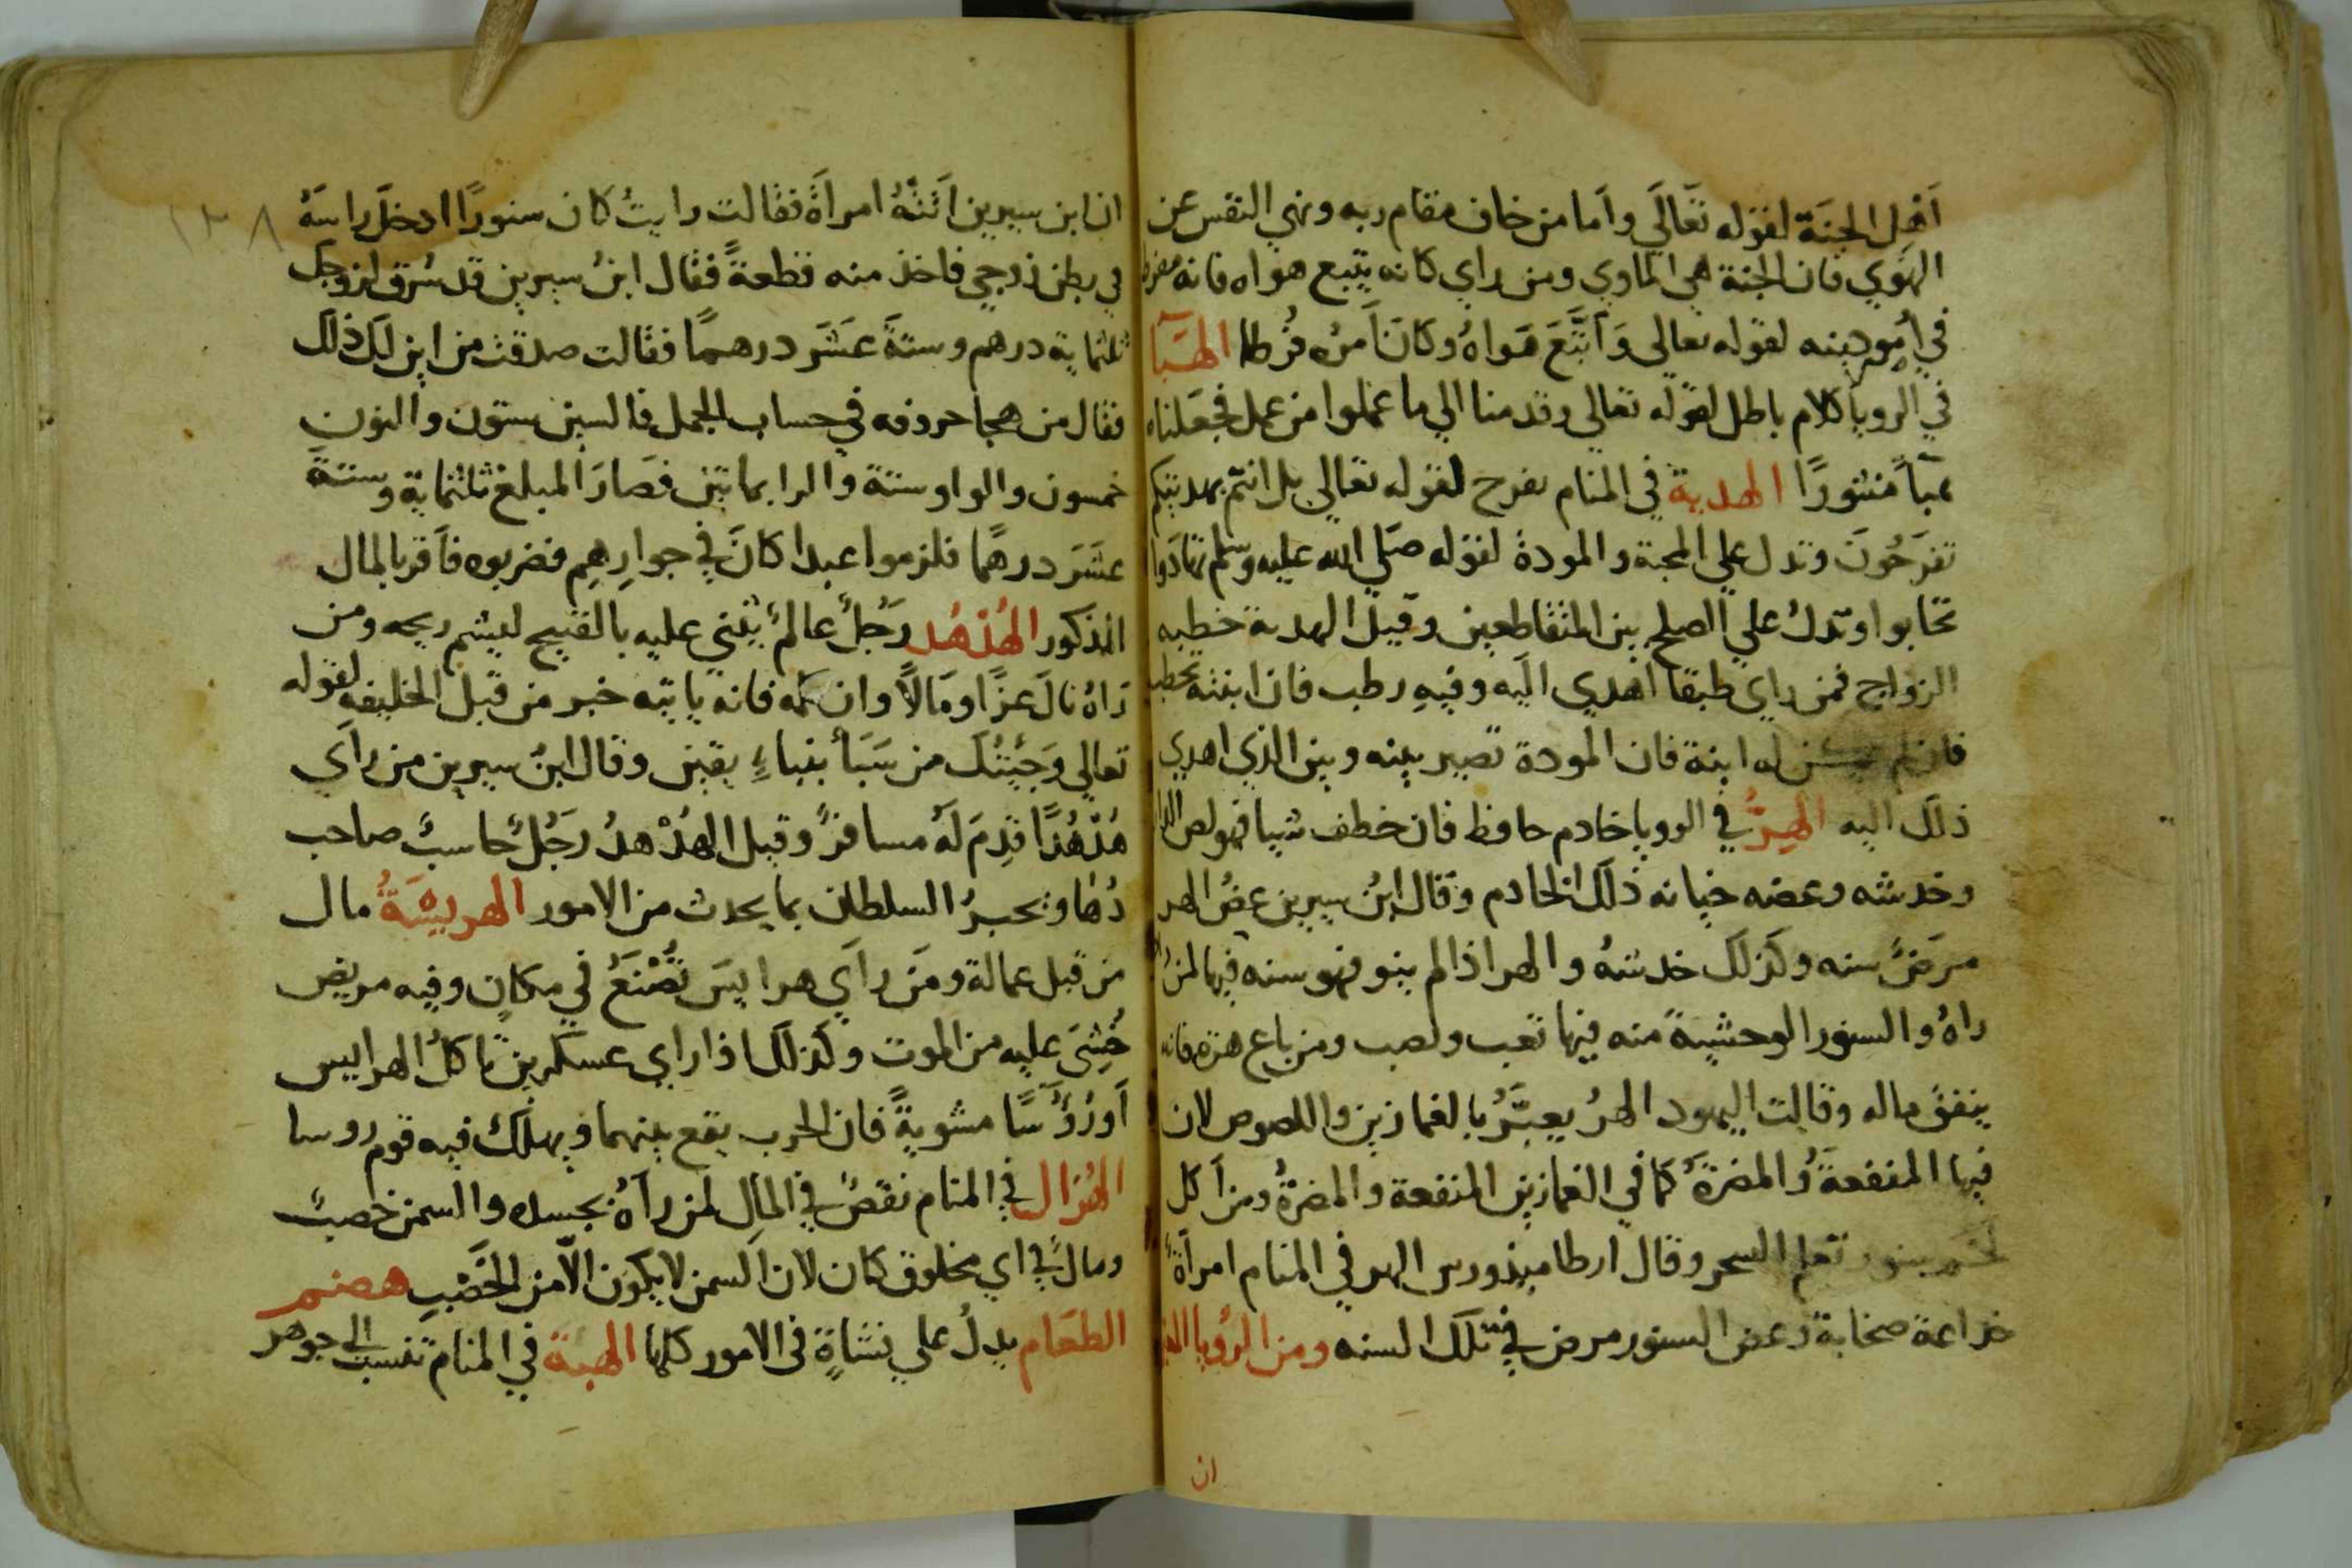 اَهْل الجنَة لقوله تعَالَي واَما من خاف مقام ربه ونهي النفس عن
الهَوي فان الجنة هي الماوي ومن راي كانه يتبع هواه فانه مفرط
في اُمور دينه لقوله تعالى وَاَتَّبَعَ هَوَاهُ وكَانَ اَمرُه فُرُطا الهَبَآ
في الرويا كلام باطل لقوله تعالى وقدمنا الي ما عملوا من عمل فجعَلناه
هَبآً منثورًا الهدية في المنام تفرح لقوله تعالي بل انتم بهديتكم
تفرَحُونَ وتدل علي المحبة والمودة لقوله صَلي الله عليه وسَلم تهادَوا
تحَابوا وتدلُ علي الصلح بين المتقاطعين وقيل الهدية خطبه
الزواج فمن راي طبقا اهدي الَيه وفيهِ رطب فان ابنته تخطب
فان لم يكن له ابنة فان المودة تصير بينه وبين الذي اهدي
ذلك اليه الهِرُّ في الرويا خادم حافظ فان خطف شيا فهو لص الدار
وخدشه وعضه خيانه ذلك الخادم وقال ابنُ سيرين عضُ الهر
مرَضُ سنه وكذلك خدشهُ والهر اذا لم ينو فهو سنه فيها لمن
راهُ والسنور الوحشيةً منه فيها تعب ونصب ومن باع هره فانه
ينفق ماله وقالت اليهود الهرُ يعبَّرُ بالغمازين واللصوص لان
فيها المنفعةُ والمضرةُ كما في الغمازين المنفعة والمضرةُ ومن اَكل
لحم سنور تعلم السحر وقال ارطاميذورس الهر في المنام امرأة
خداعة صخابة وعض السنور مرض في تلك السنه ومن الرُويا
ان
١٣٨
ان ابن سيرين اَتتهُ امراَةً فقالت رايتُ كان سنورًا ادخلَ راسَهُ
في بطن زوجي فاخذ منه قطعةً فقال ابنُ سيرين قد سُرق لزوجك
ثلثماية درهم وستةَ عَشَر درهمًا فقالت صدقت من اين لك ذلك
فقال من هجا حروفه في حساب الجمل فالسين ستون والنون
خمسون والواو ستة والرا بمايتين فصَارَ المبلغ ثلثماية وستةَ
عشَر درهمًا فلزموا عبدا كانَ في جوارِهِم فضربوه فاَقر بالمال
المذكور الهُدْهُد رَجُلٌ عالمٌ يثني عليه بالقبيح لينتم ريحه ومن
رَاهُ نالَ عزًا ومَالاً وان كلمه فانه ياتيه خبر من قبل الخليفه لقوله
تعالي وَجَيتُكَ من سَبَأ بنباءٍ يقين وقال ابنُ سيرين من راَي
هُدْهُدًا قدِمَ لهُ مسافرٌ وقيل الهُدْهدُ رَجُلٌ حاسبٌ صاحب
دُهَاء ويخبرُ السلطان بما يحدث من الامور الهريسَةُ مال
من قبل عمالة ومَن راَي هرايسَ تُصْنَعُ في مكانٍ وفيه مريض
خُشِيَ عليه من الموت وكذلك اذا راي عسكرين تاكلُ الهرايس
اَو رُوُسًا مشويةً فان الحرب يقع بينهما ويهلك فيه قوم روسا
الهُزال في المنام نقصٌ في المالِ لمن راَهُ بجسده والسمن خصبٌ
ومالٌ في اي مخلوق كان لان السمن لا يكون الاّ من الخَصْبِ هضم
الطعَام يدلُ علي نشاةٍ في الامور كلها الهبة في المنام تنسب الى جوهر